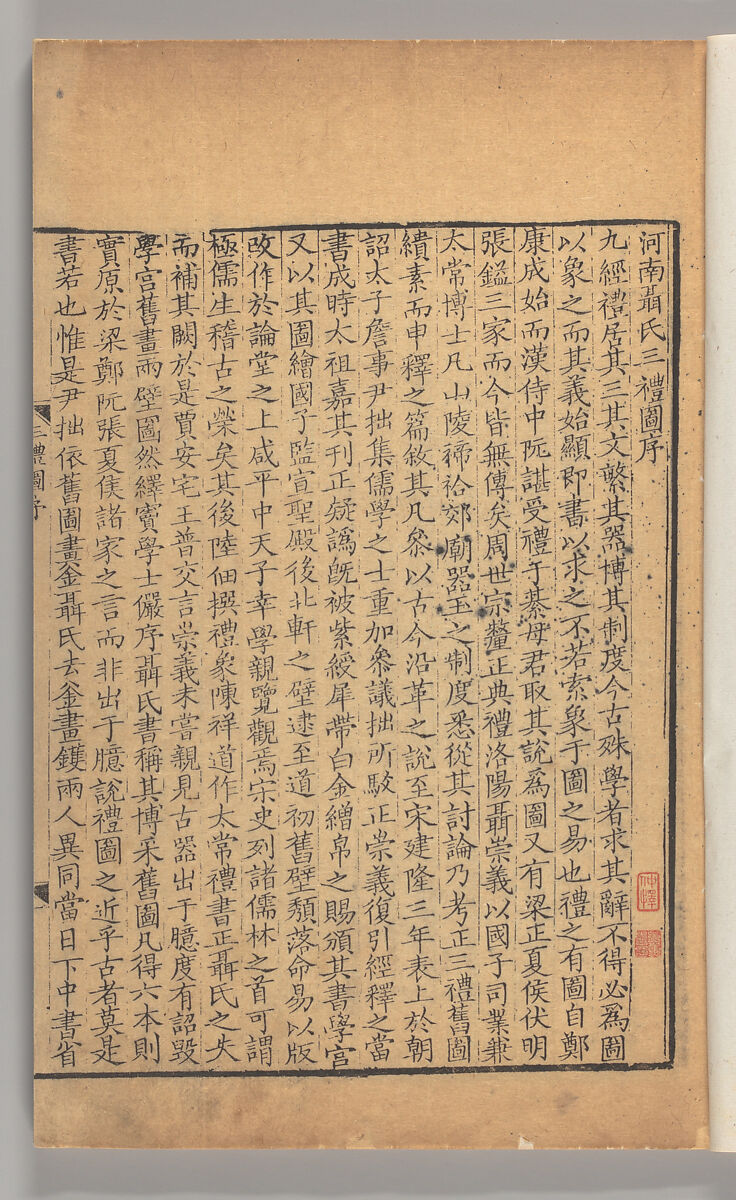 河南聶氏三禮圖序
九經禮居其三其文繁其器博其制度今古殊學者求其辭不得必爲圖
以象之而其義始顯即書以求之不若索象于圖之易也禮之有圖自鄭
康成始而漢侍中阮諶受禮于綦母君取其說爲圖又有梁正夏侯伏明
張鎰三家而今皆無傳矣周世宗釐正典禮洛陽聶崇義以國子司業兼
太常博士凡山陵禘祫郊廟器玉之制度悉從其討論乃考正三禮舊圖
繢素而申釋之篇敘其凡叅以古今沿革之說至宋建隆三年表上於朝
詔太子詹事尹拙集儒學之士重加叅議拙所駮正崇義復引經釋之當
書成時太祖嘉其刊正疑譌旣被紫綬犀帶白金繒帛之賜頒其書學宮
又以其圖繪國子監宣聖殿後北軒之壁逮至道初舊壁頹落命易以版
改作於論堂之上咸平中天子幸學親覽觀焉宋史列諸儒林之首可謂
極儒生稽古之榮矣其後陸佃撰禮象陳祥道作太常禮書正聶氏之失
而補其闕於是賈安宅王普交言崇義未嘗親見古器出于臆度有詔毀
學宮舊畫兩壁圖然繹竇學士儼序聶氏書稱其博采舊圖凡得六本則
實原於梁鄭阮張夏侯諸家之言而非出于臆說禮圖之近乎古者莫是
書若也惟是尹拙依舊圖畫釜聶氏去釜畫鑊兩人異同當日下中書省
三禮圖序
仲擇